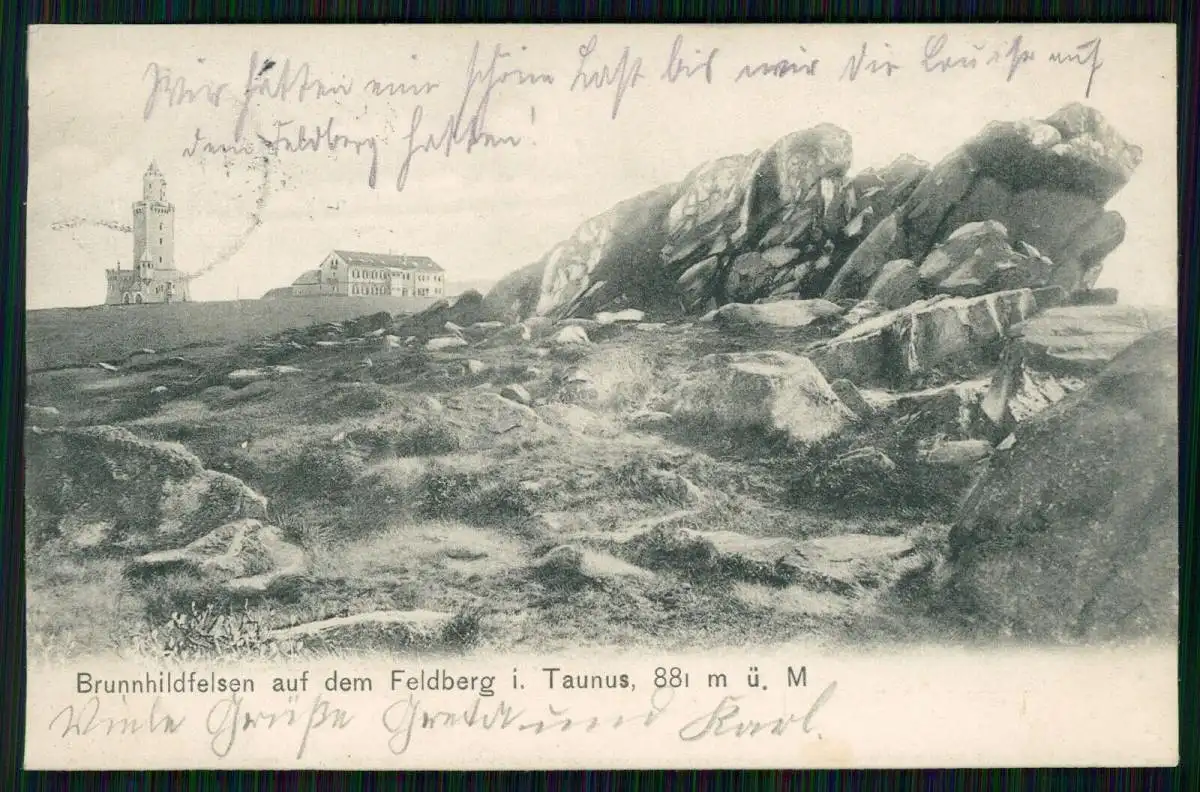 Wir hatten eine schöne Last bis wir die Louise auf
dem Feldberg hatten!
Brunnhildfelsen auf dem Feldberg i. Taunus, 881 m ü. M
Viele Grüße Greta und Karl.